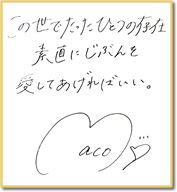 この世でたったひとつの存在
素直にじぶんを
愛してあげればいい。
Maco